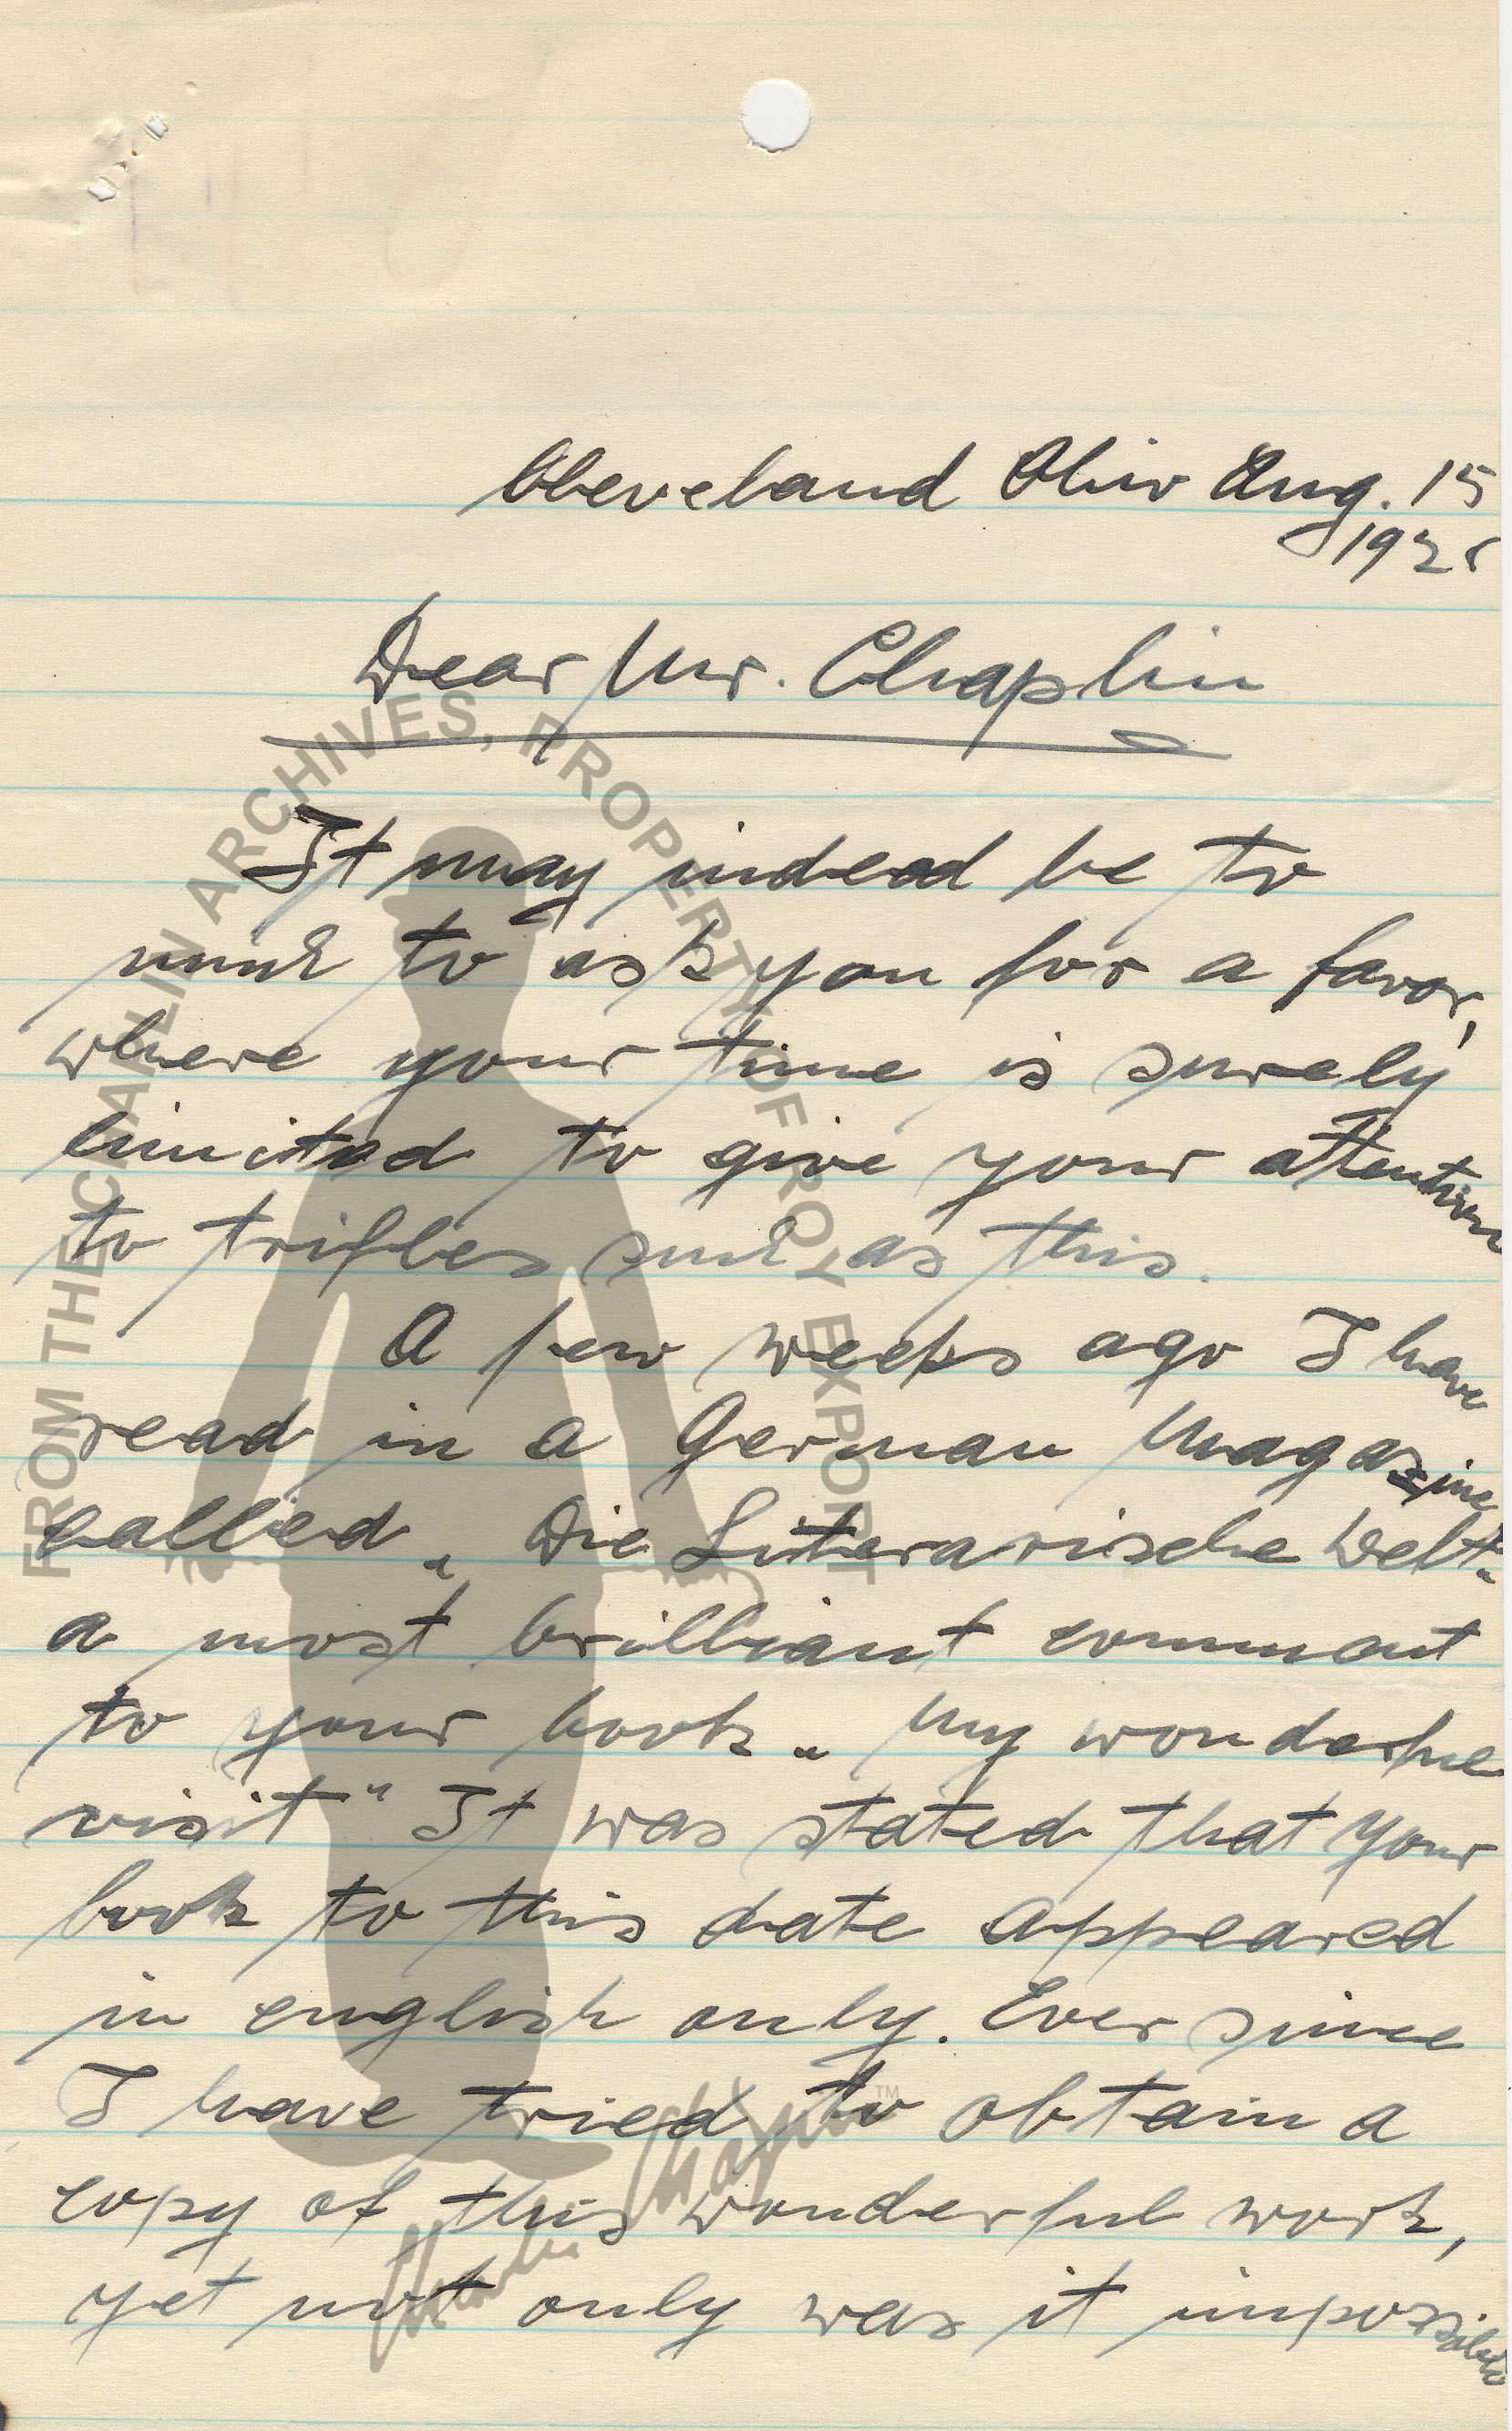 Cleveland Ohio Aug. 15
192
Dear Mr. Chaplin
It may indeed be to
much to ask you for a favor,
where your time is surely
limited to give your attention
to trifles such as this.
A few weeks ago I have
read in a German Magazine
called „Die Literarische Welt“
a most brilliant comment
to your book „My wonderful
visit“ It was stated that your
book to this date appeared
in english only. Ever since
I have tried to obtain a
copy of this wonderful work,
yet not only was it impossible
FROM THE CHAPLIN ARCHIVES, PROPERTY OF ROY EXPORT
Charlie Chaplin™